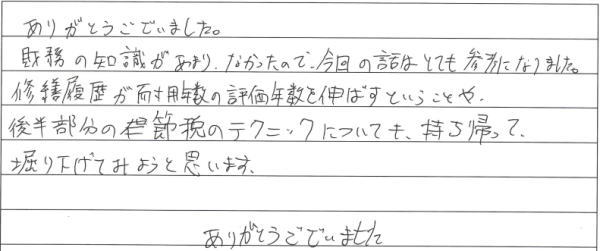 ありがとうございました。
財務の知識があまりなかったので、今回の話はとても参考になりました。
修繕履歴が耐用年数の評価年数を伸ばすということや、
後半部分の節税のテクニックについても、持ち帰って、
堀り下げてみようと思います。
ありがとうございました